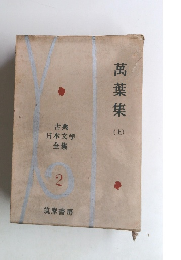 萬葉集
(上)
古典
日本文學
全集
2
筑摩書房